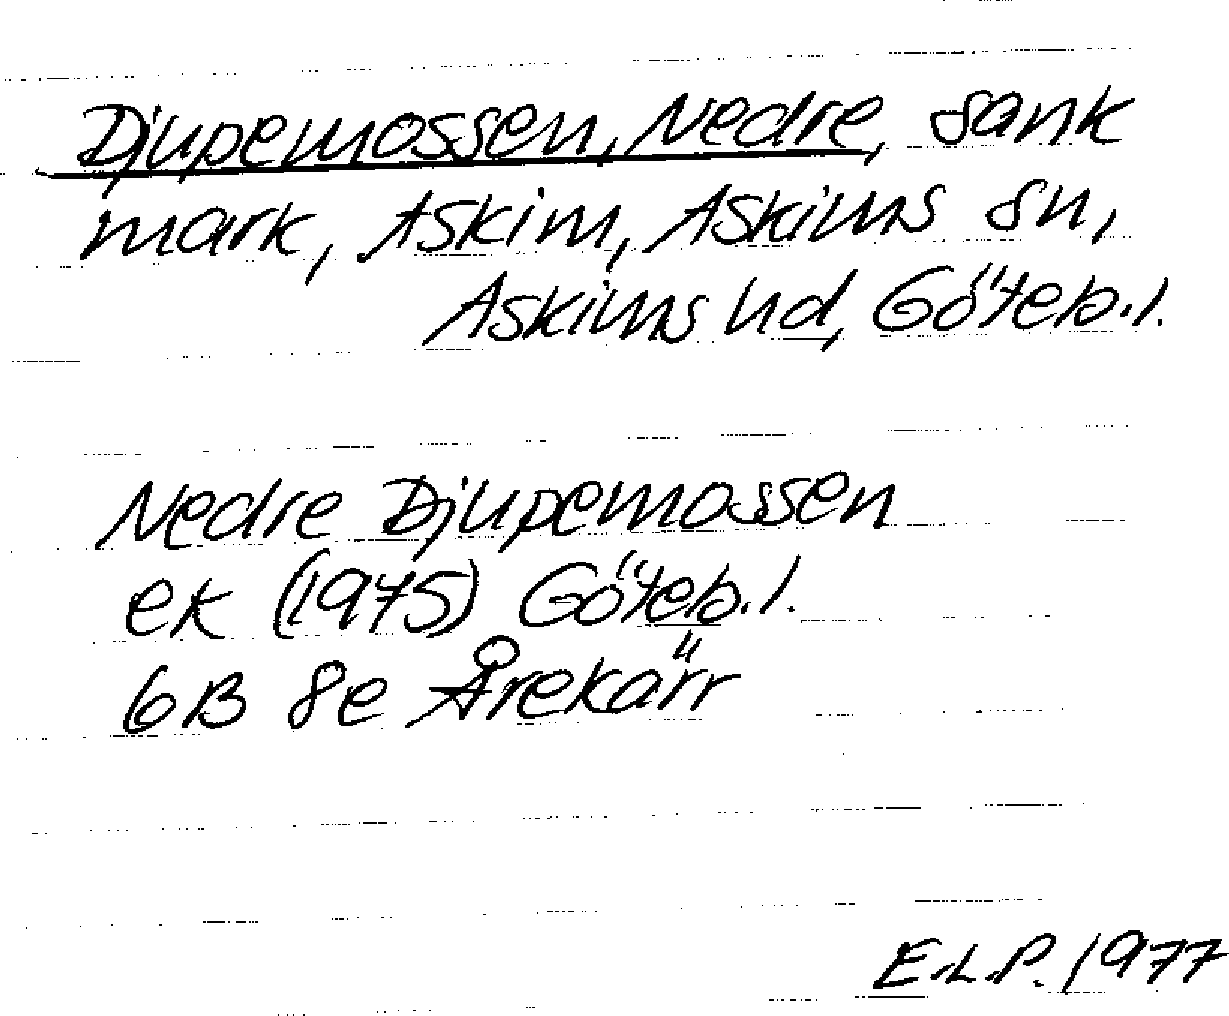 Djupemossen, Nedre, sank
mark, Askim, Askims sn,
Askims hd, Göteb.l.
Nedre Djupemossen
ek (1975) Göteb.l.
6B 8e Årekärr
E.L.P. 1977